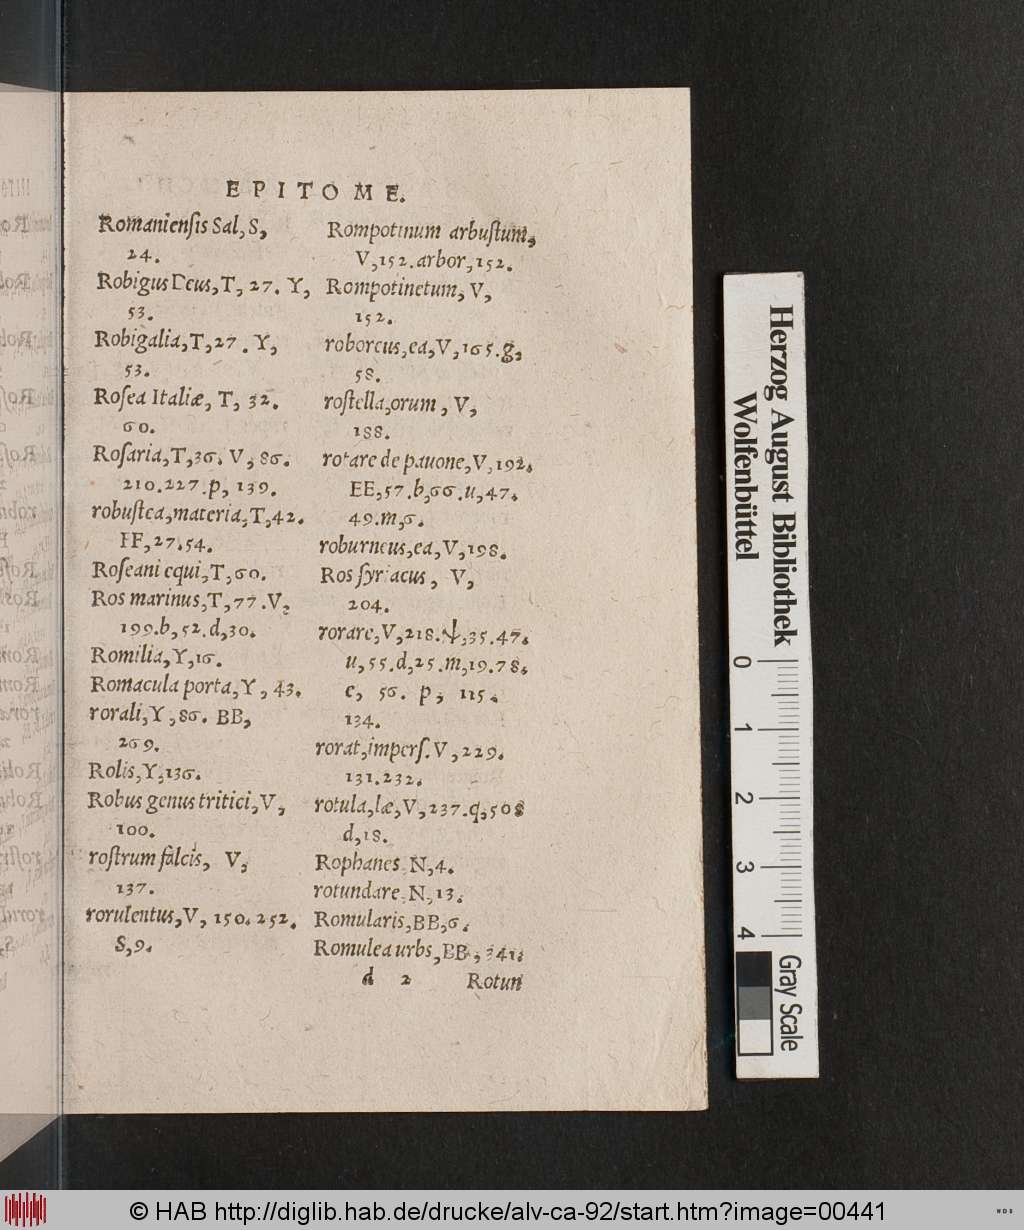 EPITOME.
Romanienſis Sal, S,
24.
Robigus Deus, T, 27. Y,
53.
Robigalia, T, 27. Y,
53.
Roſea Italiæ, T, 32.
60.
Roſaria, T, 36. V, 86.
210. 227. p, 139.
robuſtea, materia, T, 42.
FF, 27. 54.
Roſeani equi, T, 60.
Ros marinus, T, 77. V,
199. b, 52. d, 30.
Romilia, Y, 16.
Romacula porta, Y, 43.
rorali, Y, 86. BB,
269.
Rolis, Y, 136.
Robus genus tritici, V,
100.
roſtrum falcis, V,
137.
rorulentus, V, 150. 252.
S, 9.
Rompotinum arbuſtum,
V, 152. arbor, 152.
Rompotinetum, V,
152.
roboreus, ea, V, 165. g,
58.
roſtella, orum, V,
188.
rotare de pauone, V, 192.
EE, 57. b, 66. u, 47.
49. m, 6.
roburneus, ea, V, 198.
Ros ſyriacus, V,
204.
rorare, V, 218. 35. 47.
u, 55. d, 25. m, 19. 78.
e, 56. p, 115.
134.
rorat, imperſ. V, 229.
131. 232.
rotula, læ, V, 237. q, 508
d, 18.
Rophanes N, 4.
rotundare, N, 13.
Romularis, BB, 6.
Romulea urbs, BB, 341.
d 2 Rotun
Herzog August Bibliothek
Wolfenbüttel
0 1 2 3 4
Gray Scale
© HAB http://diglib.hab.de/drucke/alv-ca-92/start.htm?image=00441